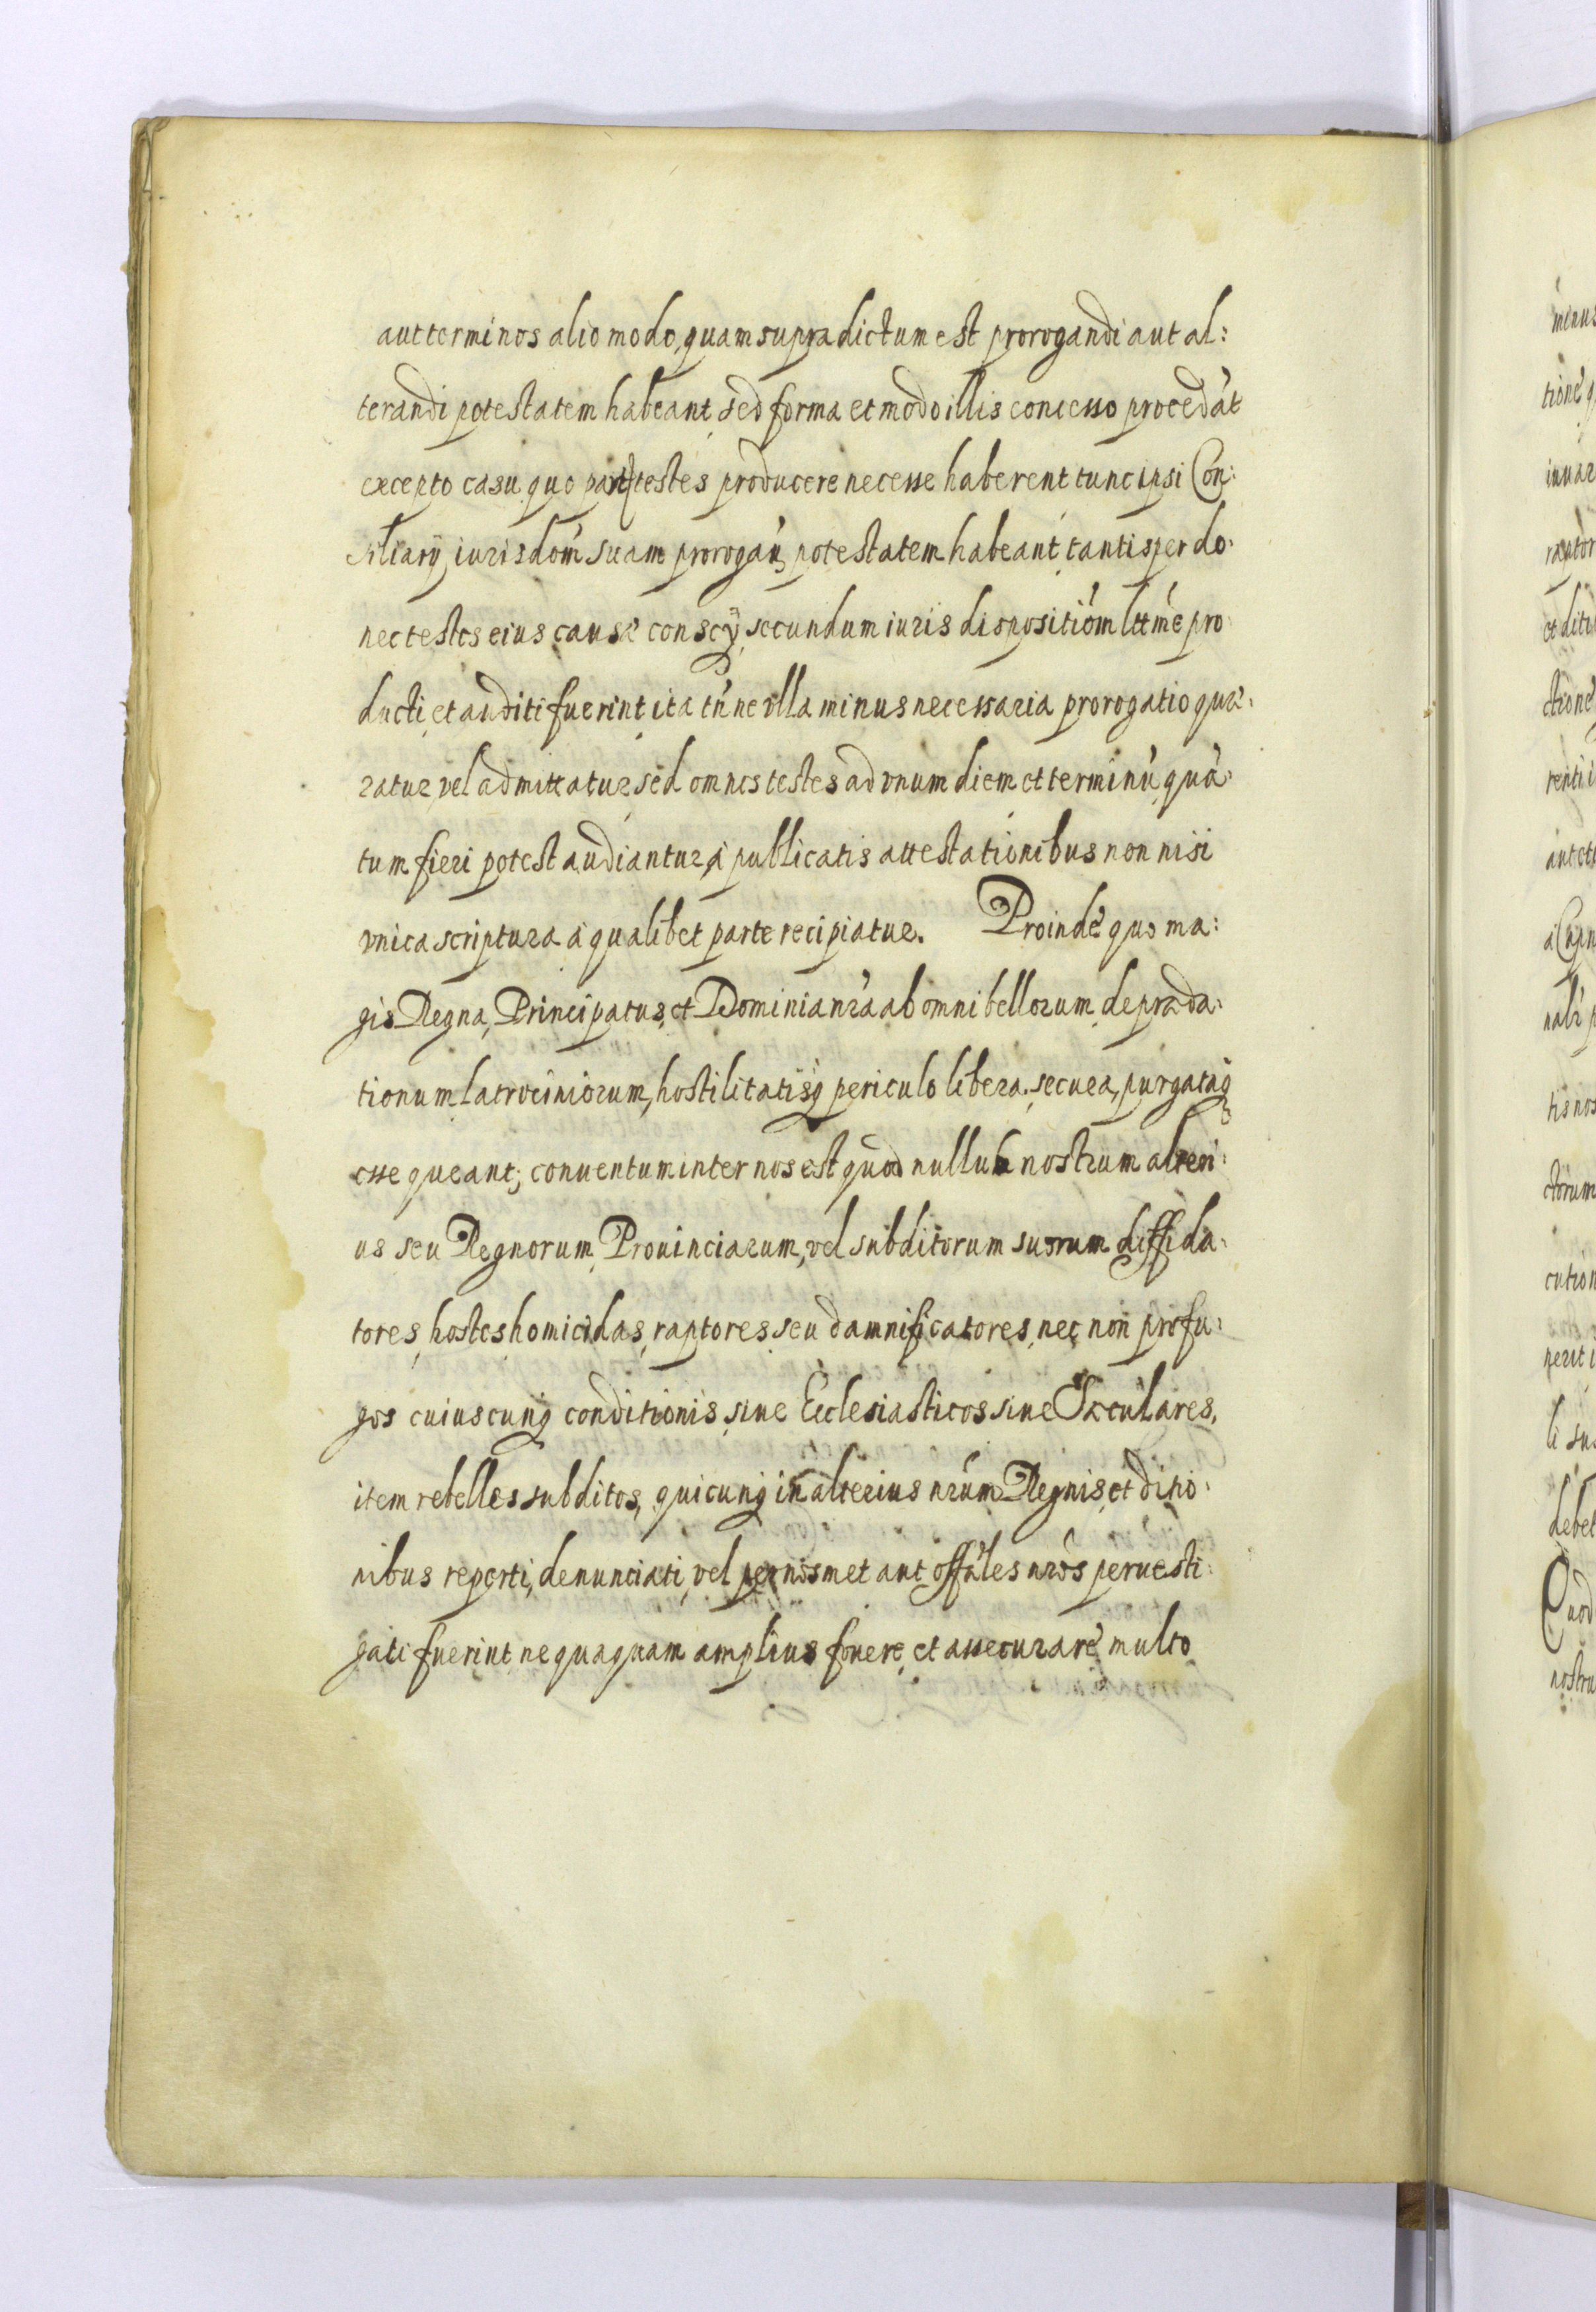 aut terminos alio modo, quam supra dictum est prorogandi aut al:
terandi potestatem habeant, sed forma et modo illis concesso procedāt
excepto casu quo testes producere necesse haberent tunc ipsi Con:
siliarij, iurisdōm̄ suam potestatem habeant, tantisper do:
nec testes eius causæ conscij, secundum iuris dispositiōm̄ lttm̄e pro
ducti, et auditi fuerint, ita tn̄ ne vlla minus necessaria prorogatio quæ:
ratur vel admittatur, sed omnes testes ad vnum diem et terminū, quā:
tum fieri potest audiantur, publicatis attestationibus non nisi
vnica scriptura à qualibet parte recipiatur. Proindè quo ma:
gis Regna, Principatus, et Dominia nr̄a ab omni bellorum, depræda:
tionum, latrociniorum, hostilitatisq̢ periculo libera, secura, purgataq̢
esse queant; conuentum inter nos est quòd nullus nostrum alteri:
us seu Regnorum, Prouinciarum, vel subditorum suorum diffida:
tores, hostes, homicidas, raptores, seu damnificatores, nec non profu:
gos cuiuscunq̢ conditionis, siue Ecclesiasticos siue Sæculares,
item rebelles subditos, quicunq̢ in alterius nr̄um Regnis, et ditio:
nibus reperti, denunciati, vel per nosmet aut offāles nr̄os peruesti:
gati fuerint, nequaquam amplius fouere, et assecurarè multo